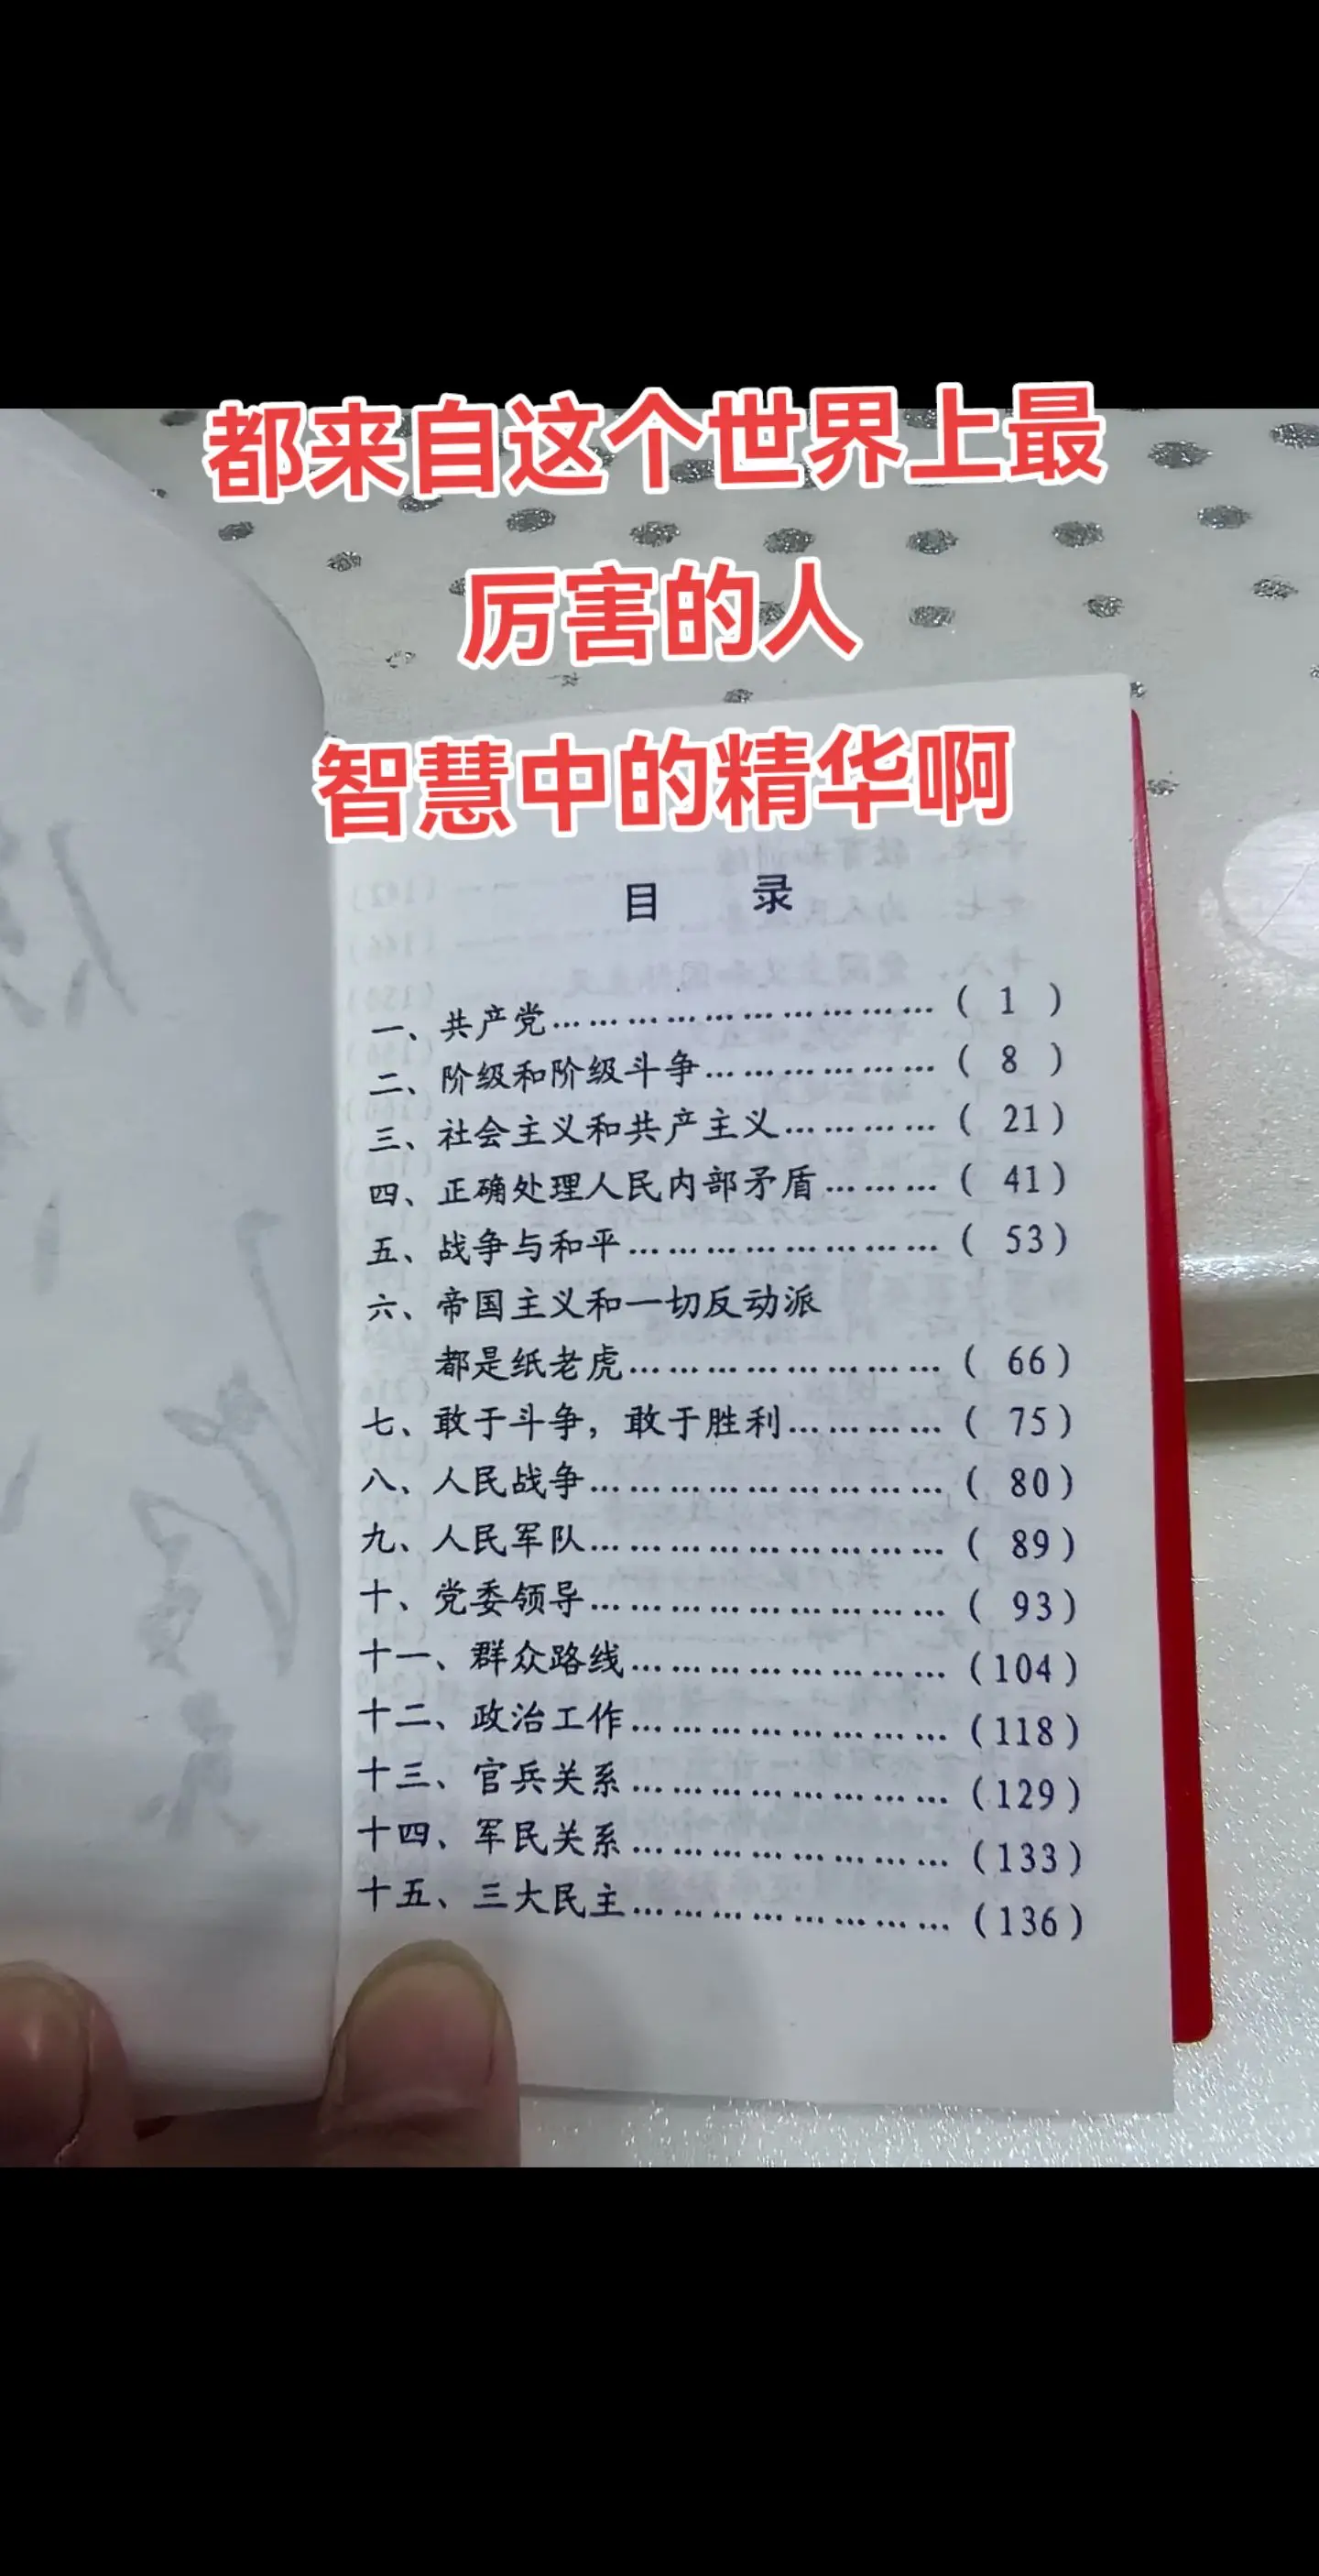 都来自这个世界上最
厉害的人
智慧中的精华啊
目 录
一、共产党……………………………( 1 )
二、阶级和阶级斗争………………( 8 )
三、社会主义和共产主义…………( 21)
四、正确处理人民内部矛盾………( 41)
五、战争与和平……………………( 53)
六、帝国主义和一切反动派
都是纸老虎……………………( 66)
七、敢于斗争，敢于胜利…………( 75)
八、人民战争………………………( 80)
九、人民军队………………………( 89)
十、党委领导………………………( 93)
十一、群众路线……………………(104)
十二、政治工作……………………(118)
十三、官兵关系……………………(129)
十四、军民关系……………………(133)
十五、三大民主……………………(136)